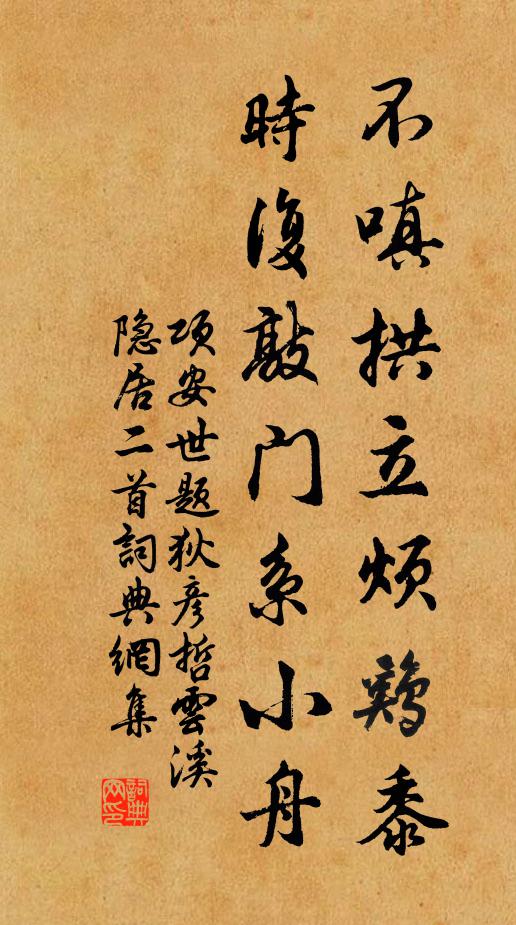 不嗔拱立煩鷄黍
時復敲门系小舟
项安世题狄彦哲雲溪
隐居二首詞典網集
詞典网印